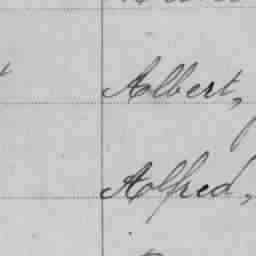 Albert,
Alfred,